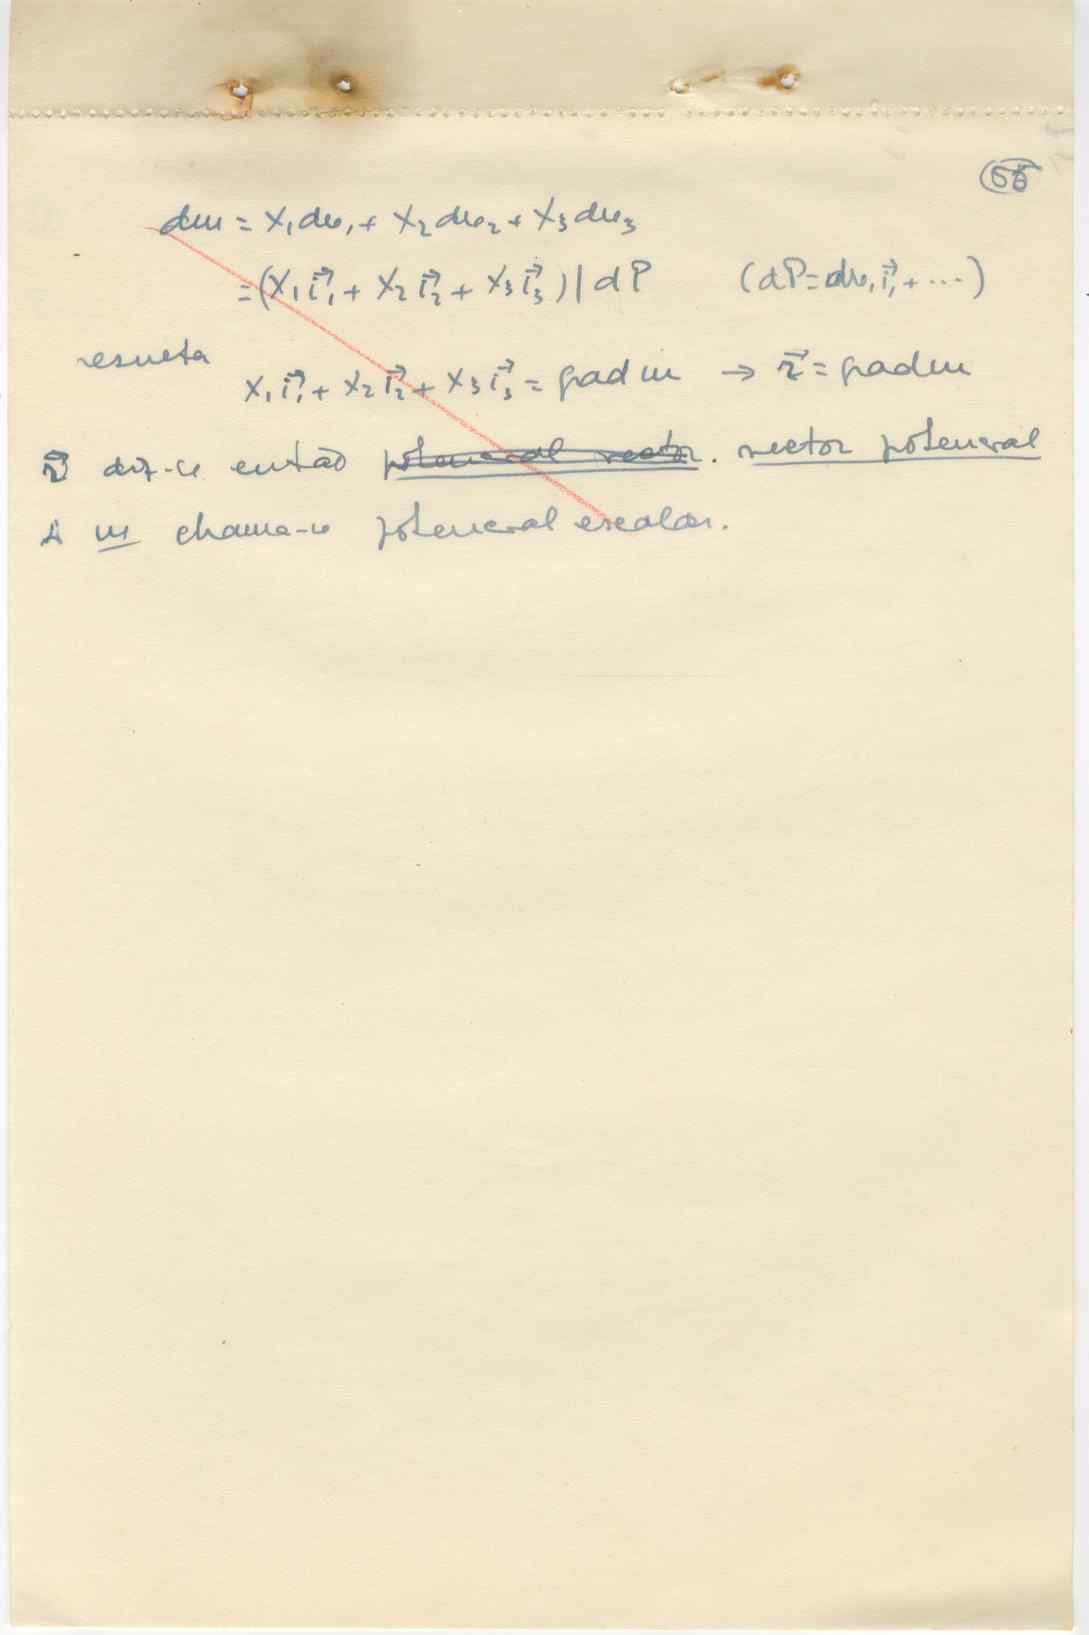 55
dm = X₁dx₁ + X₂dx₂ + X₃dx₃
= (X₁i⃗₁ + X₂i⃗₂ + X₃i⃗₃) | dP (dP = dx₁i⃗₁ + ...)
resulta
X₁i⃗₁ + X₂i⃗₂ + X₃i⃗₃ = grad m → r⃗ = grad m
r⃗ diz-se então potencial vector. vector potencial
A m chama-se potencial escalar.